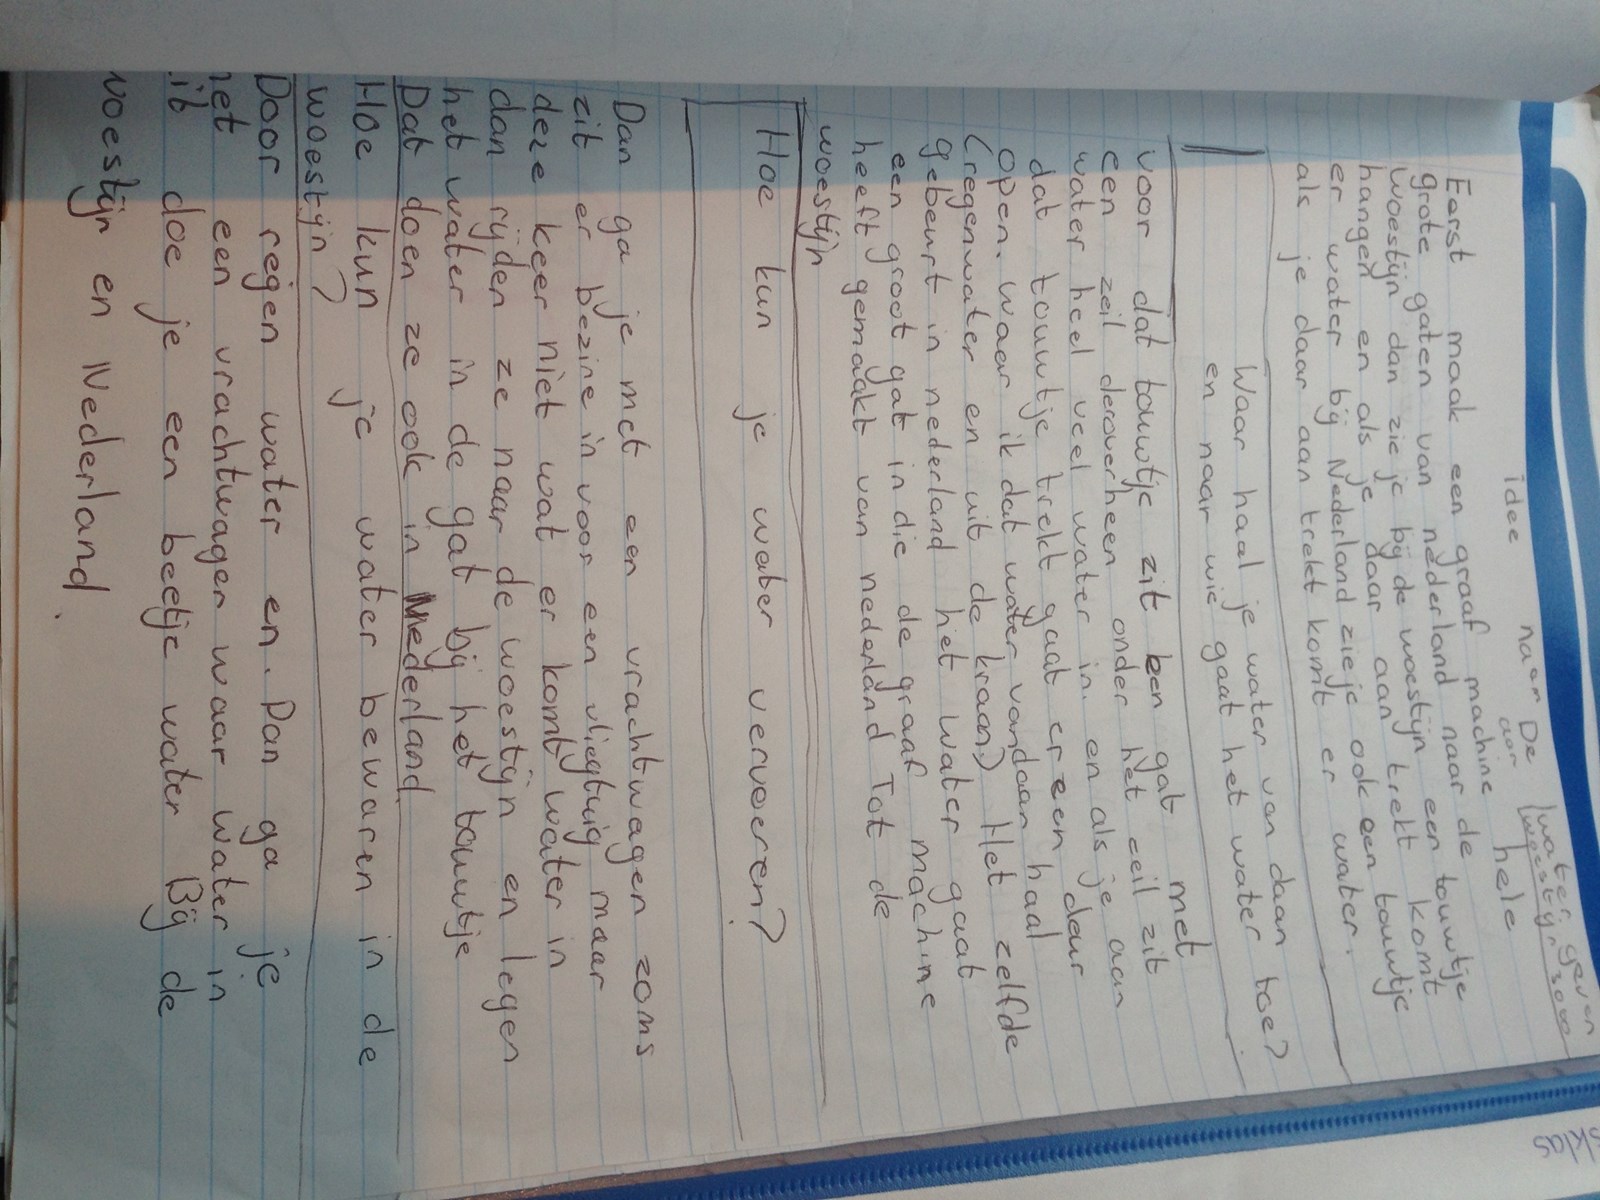 idee naar De water geven
woestijn 2000
door hele
Eerst maak een graaf machine
grote gaten van nederland naar de
woestijn dan zie je bij de woestijn een touwtje
hangen en als je daar aan trekt komt
er water bij Nederland zie je ook een touwtje
als je daar aan trekt komt er water.
Waar haal je water van daan toe?
en naar wie gaat het water
voor dat touwtje zit een gat met
een zeil deroverheen onder het ceil zit
water heel veel water in. en als je aan
dat touwtje trekt gaat er een deur
open. waar ik dat water vandaan haal
(regenwater en uit de kraan) Het zelfde
gebeurt in nederland het water gaat
een groot gat in die de graaf machine
heeft gemaakt van nederland Tot de
woestijn
Hoe kun je water ververen?
Dan ga je met een vrachtwagen zoms
zit er bezine in voor een vliegtuig maar
deze keer niet wat er komt water in
dan rijden ze naar de woestijn en legen
het water in de gat bij het touwtje
Dat doen ze ook in Nederland
Hoe kun je water bewaren in de
woestijn?
Door regen water en. Dan ga je
met een vrachtwagen waar water in
zit doe je een beetje water Bij de
woestijn en Nederland.
sklas